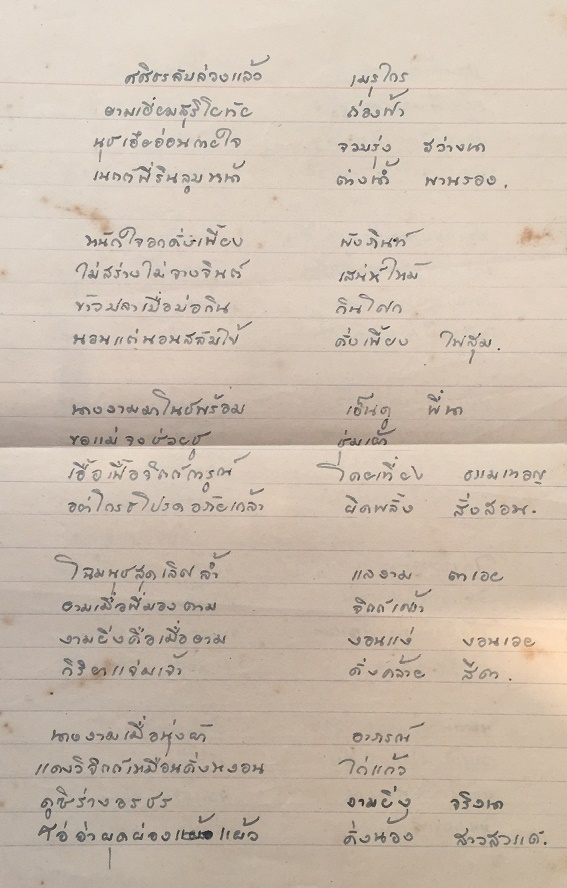 ศศิธรลับล่วงแล้ว เมรุไกร
ยามเยี่ยมสุริโยทัย ต่องฟ้า
นุชเอ๋ยอ่อนภายใจ จวบรุ่ง สว่างนา
เนตรพี่รินลูบหน้า ต่างน้ำ พานรอง.
หนักใจอกดั่งเพี้ยง พังภินท์
ไม่สร่างไม่จางจินต์ เสน่ห์ไหม้
ข้าวปลาเบื่อบ่อกิน กินโศก
นอนแต่นอนสลับไข้ ดั่งเพี้ยง ไฟสุม.
นางงามมาโนชพร้อม เอ็นดู พี่นา
ขอแม่จงช่วยชู ชุ่มเย้า
เอื้อเฟื้อจิตต์การูณ์ โดยเที่ยง ธรรมเทอญ
อย่าโกรธโปรดอภัยเกล้า ผิดพลั้ง สั่งสอน.
โฉมนุชสุดเลิศล้ำ แลงาม ตาเอย
ยามเมื่อพี่มองตาม จิตต์เศร้า
งามยิ่งคือเมื่อยาม งอนแง่ งอนเอย
กิริยาแจ่มเจ้า ดั่งคล้าย สีดา.
นางงามเมื่อนุ่งผ้า อาภรณ์
แดงวิจิตต์เหมือนดั่งหงอน ไก่แก้ว
ดูซิร่างอรชร งามยิ่ง จริงนา
ผุดผ่อง แผ้ว ดั่งน้อง สาวสวรรค์.